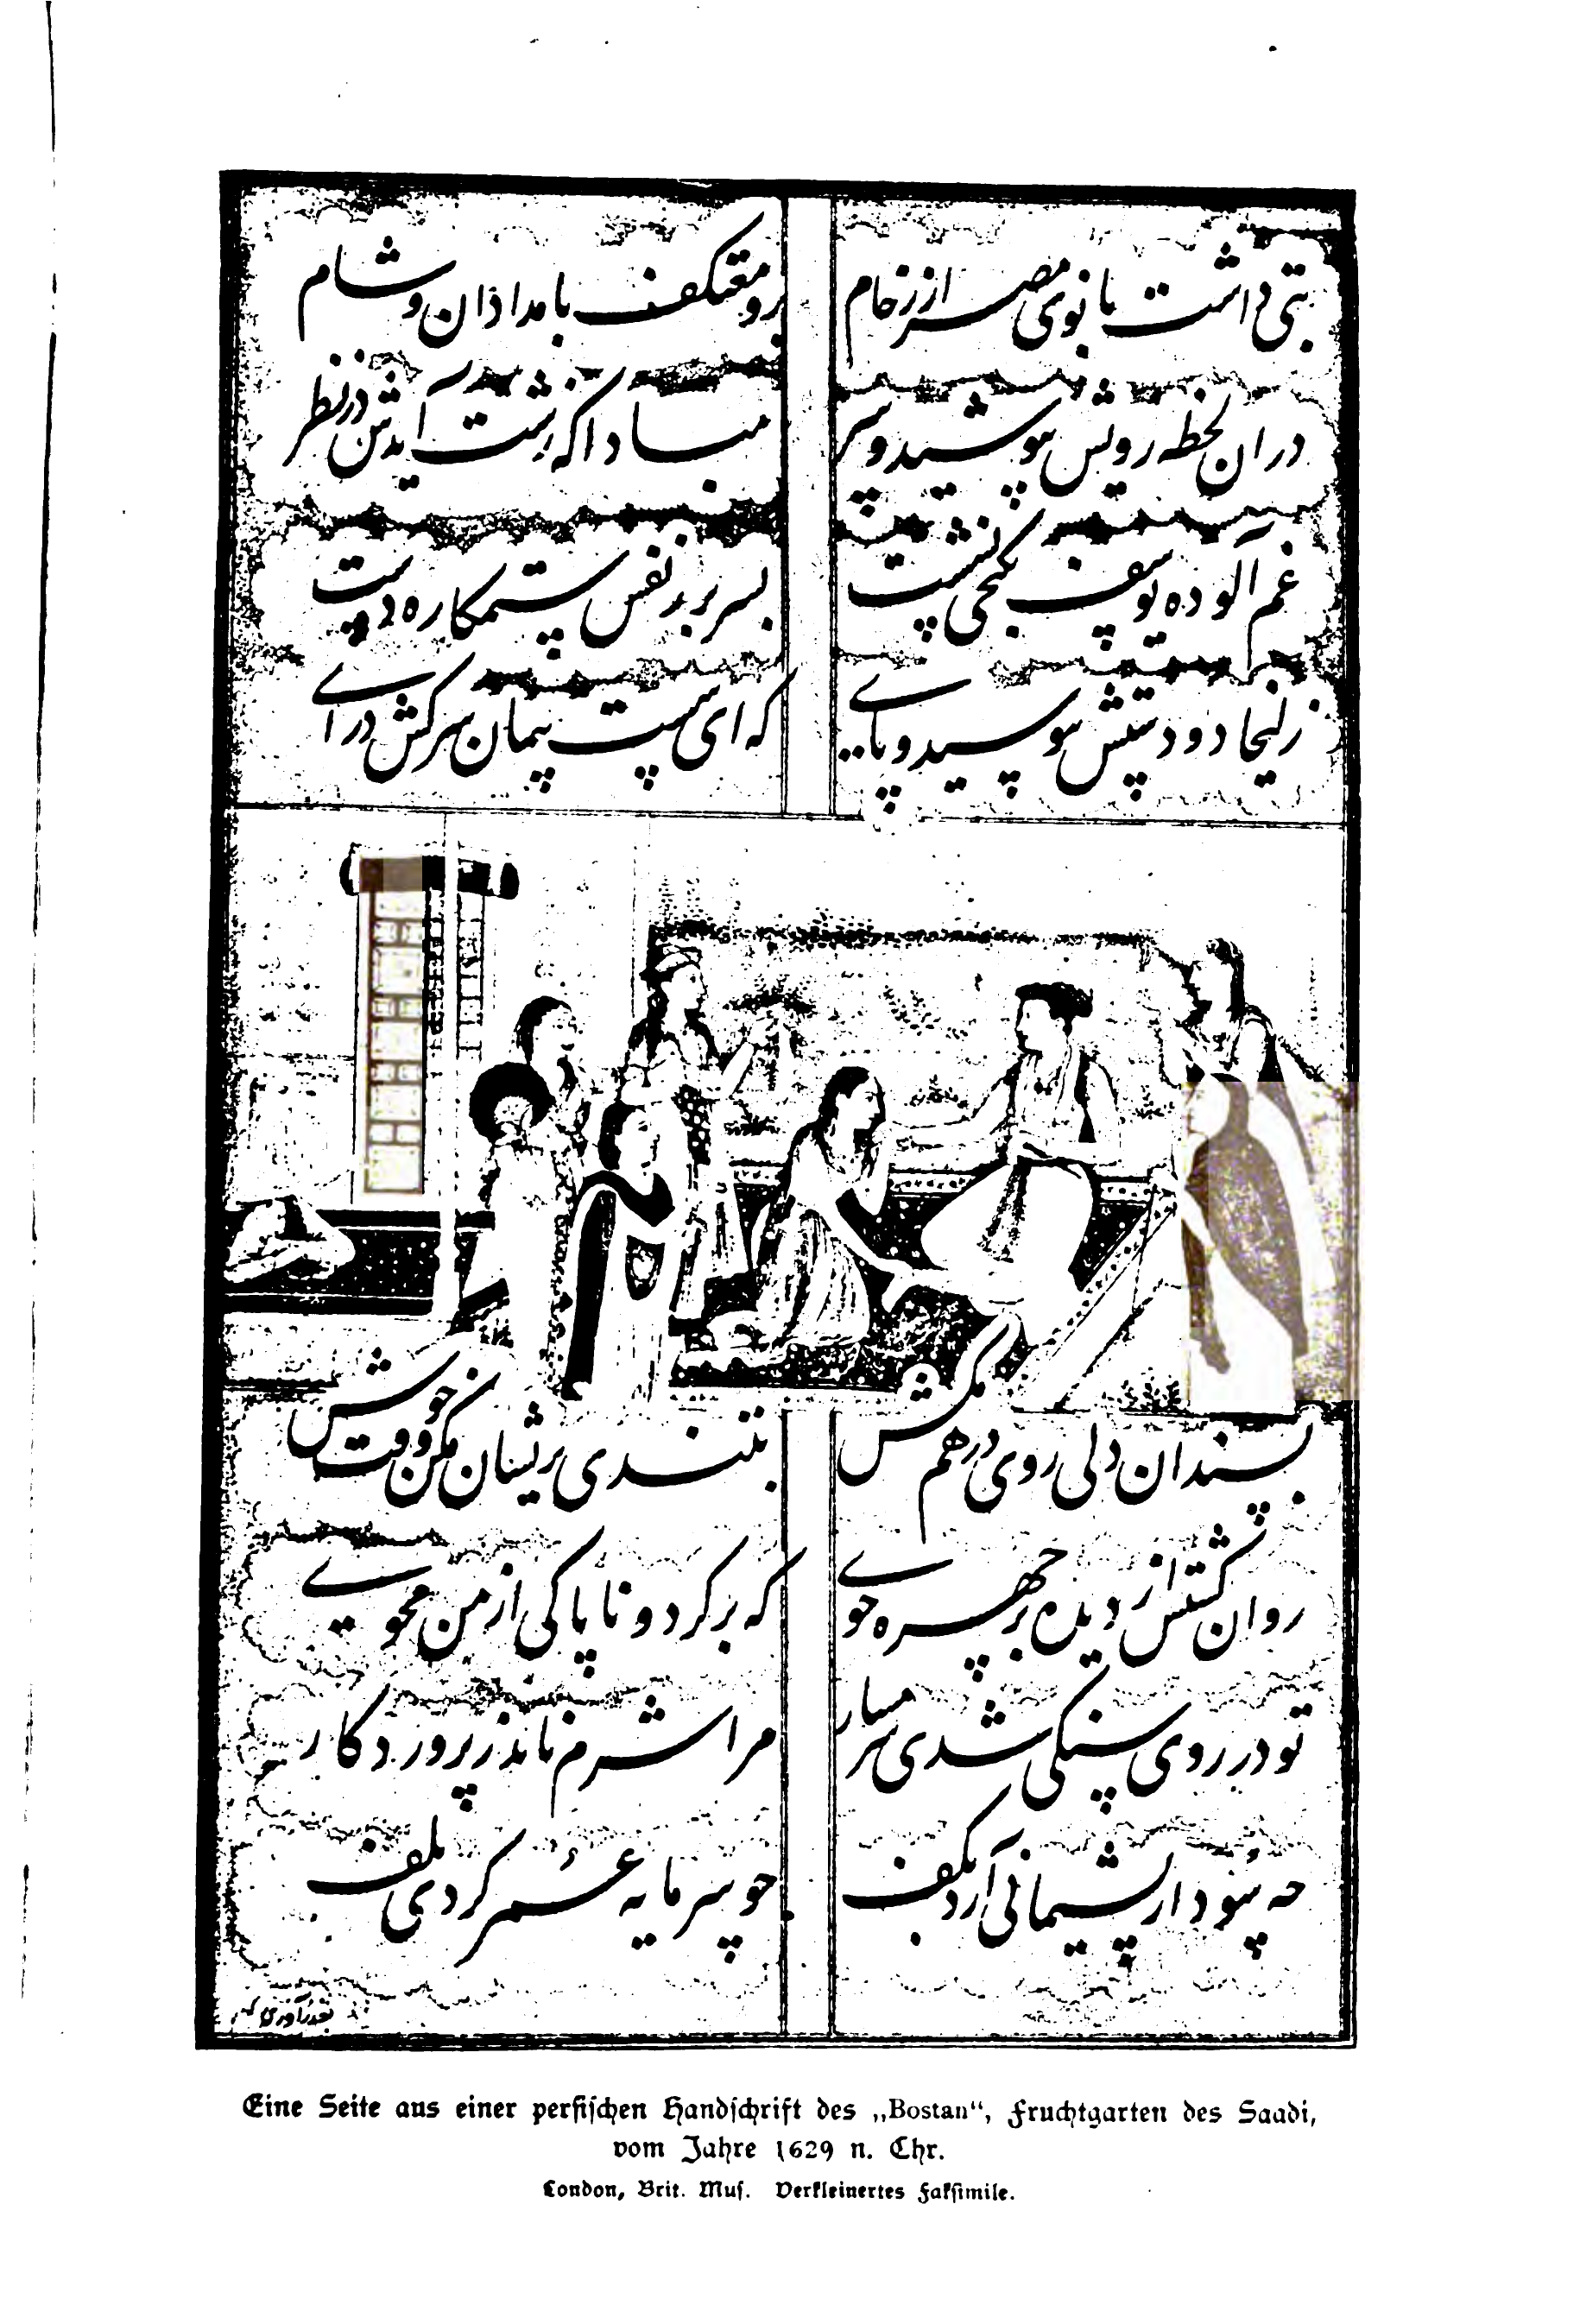 بتی داشت بانوی مصر از زخام برو معتکف بامدادان و شام
دران لحظه رویش بپوشید و سر مبادا که زشت آیدش در نظر
غم آلوده یوسف بکنجی نشست بسر بر ز نفس ستمکاره دست
زلیخا دو دستش ببوسید و پای که ای سست پیمان سرکش درای
بسندان دلی روی درهم مکش بتندی پریشان مکن وقت خوش
روان گشتش از دیده بر چهره جوی که برگرد و ناپاکی از من مجوی
تو در روی سنگی شدی شرمسار مرا شرم ناید ز پروردگار
چه سود ار پشیمانی آرد بکف چو سرمایه عمر کردی تلف
Eine Seite aus einer persischen Handschrift des „Bostan“, Fruchtgarten des Saadi,
vom Jahre 1629 n. Chr.
London, Brit. Mus. Verkleinertes Faksimile.